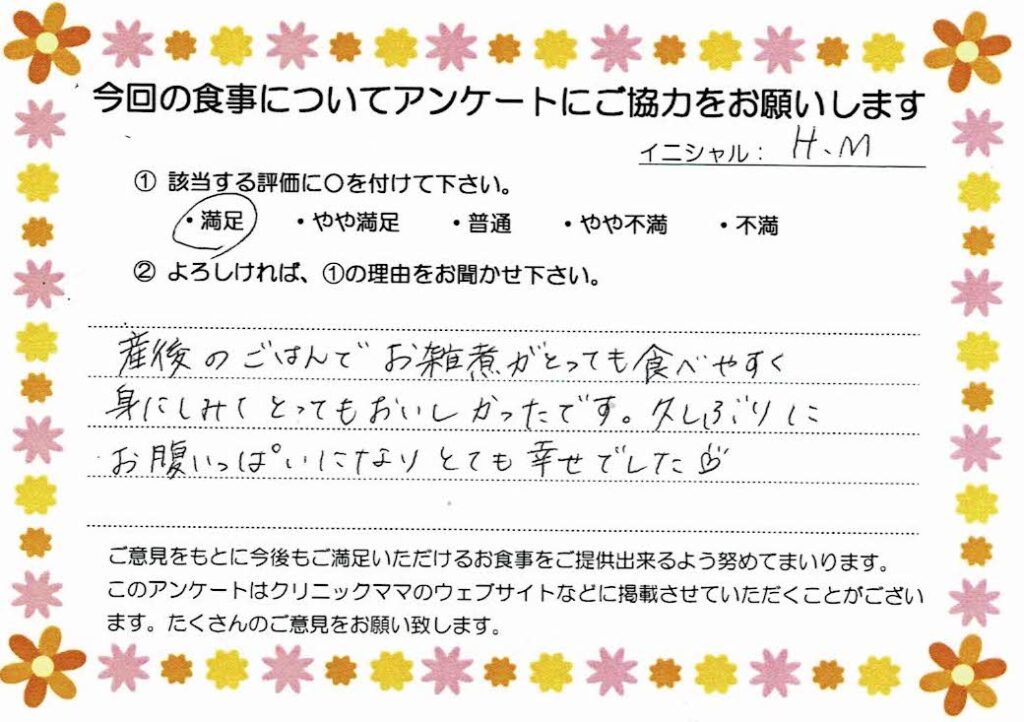 今回の食事についてアンケートにご協力をお願いします
イニシャル： H.M
① 該当する評価に〇を付けて下さい。
・満足 ・やや満足 ・普通 ・やや不満 ・不満
② よろしければ、①の理由をお聞かせ下さい。
産後のごはんでお雑煮がとっても食べやすく
身にしみてとってもおいしかったです。久しぶりに
お腹いっぱいになりとても幸せでした
ご意見をもとに今後もご満足いただけるお食事をご提供出来るよう努めてまいります。
このアンケートはクリニックママのウェブサイトなどに掲載させていただくことがござい
ます。たくさんのご意見をお願い致します。